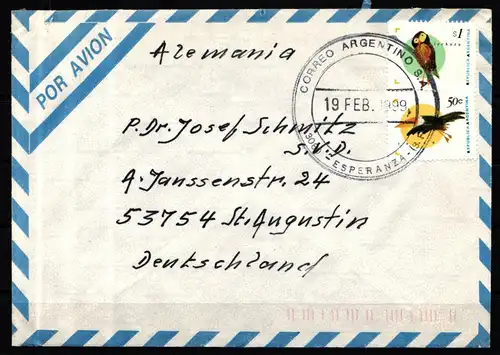 POR AVION
Alemania
$1
REPUBLICA ARGENTINA
50c
REPUBLICA ARGENTINA
CORREO ARGENTINO S.A.
19 FEB. 1999
ESPERANZA
P. Dr. Josef Schmitz
S.V.D.
A.-Janssenstr. 24
53754 St. Augustin
Deutschland